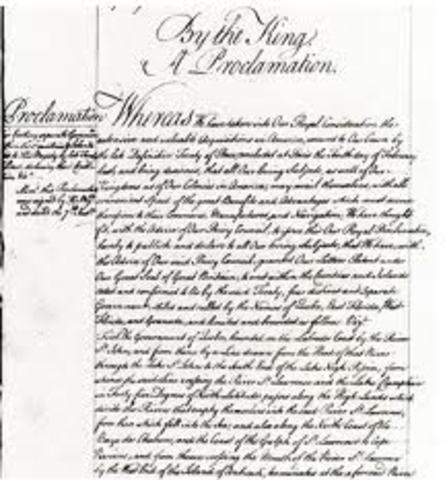 By the King.
A Proclamation.
Proclamation
for erecting separate
Whereas We have taken into Our Royal Consideration the
extensive and valuable Acquisitions in America, secured to Our Crown by
the late Definitive Treaty of Peace, concluded at Paris the Tenth day of February
last, and being desirous, that all Our loving Subjects, as well of Our
Kingdoms as of Our Colonies in America, may avail themselves, with all
convenient Speed, of the great Benefits and Advantages which must accrue
therefrom to their Commerce, Manufactures, and Navigation; We have thought
fit, with the Advice of Our Privy Council, to issue this Our Royal Proclamation,
hereby to publish and declare to all Our loving Subjects, that We have, with
the Advice of Our said Privy Council, granted Our Letters Patent under
Our Great Seal of Great Britain, to erect within the Countries and Islands
ceded and confirmed to Us by the said Treaty, four distinct and separate
Governments, stiled and called by the Names of Quebec, East Florida, West
Florida, and Grenada, and limited and bounded as follows;
First The Government of Quebec, bounded on the Labrador Coast by the River
St. John, and from thence by a Line drawn from the Head of that River
through the Lake St. John to the South End of the Lake
from whence the said Line crossing the River St. Lawrence and the Lake Champlain
in Forty five Degrees of North Latitude, passes along the High Lands which
divide the Rivers that empty themselves into the said River St. Lawrence,
from those which fall into the Sea; and also along the North Coast of the
Baye des Chaleurs, and the Coast of the Gulph of St. Lawrence to Cape
Rosieres, and from thence crossing the Mouth of the River St. Lawrence
by the West End of the Island of terminates at the aforesaid River